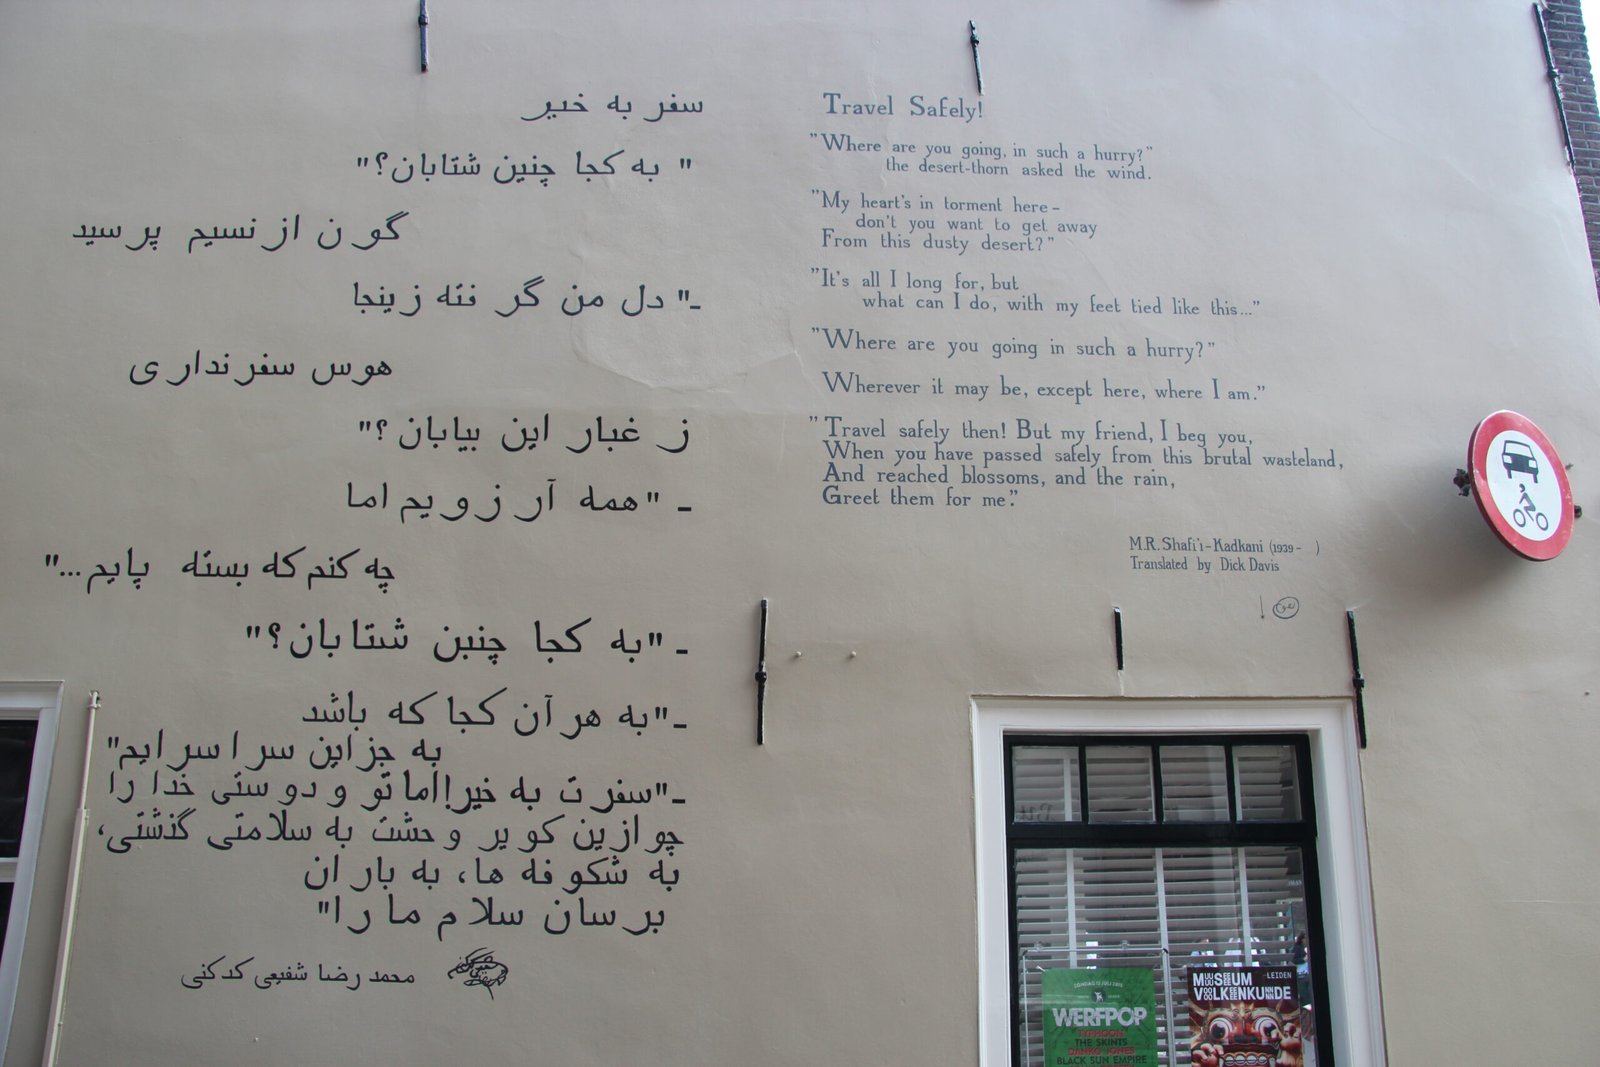 سفر به خیر
" به کجا چنین شتابان؟"
گون از نسیم پرسید
-" دل من گرفته زینجا
هوس سفر نداری
ز غبار این بیابان؟"
- "همه آرزویم اما
چه کنم که بسته پایم..."
- "به کجا چنین شتابان؟"
-"به هر آن کجا که باشد
به جز این سرا سرایم"
-"سفرت به خیر!اما تو و دوستی خدا را
چو ازین کویر وحشت به سلامتی گذشتی،
به شکوفه ها، به باران
برسان سلام ما را"
محمد رضا شفیعی کدکنی
Travel Safely!
"Where are you going, in such a hurry?"
the desert-thorn asked the wind.
"My heart's in torment here -
don't you want to get away
From this dusty desert?"
"It's all I long for, but
what can I do, with my feet tied like this..."
"Where are you going in such a hurry?"
Wherever it may be, except here, where I am."
"Travel safely then! But my friend, I beg you,
When you have passed safely from this brutal wasteland,
And reached blossoms, and the rain,
Greet them for me."
M.R. Shafi'i-Kadkani (1939 - )
Translated by Dick Davis
ZONDAG 12 JULI 2015
WERFPOP
TYPHOON
THE SKINTS
DANKO JONES
BLACK SUN EMPIRE
MUSEUM
VOLKENKUNDE
LEIDEN